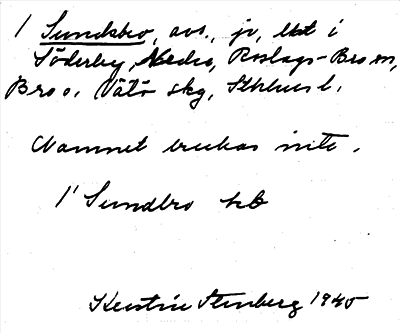 1 Sundsbro, avs., jr, ebt i
Söderby, Nedre, Roslags-Bro sn,
Bro o. Vätö skg, Sthlms l.
Namnet brukas inte.
1' Sundbro hb
Kerstin Stenberg 1945